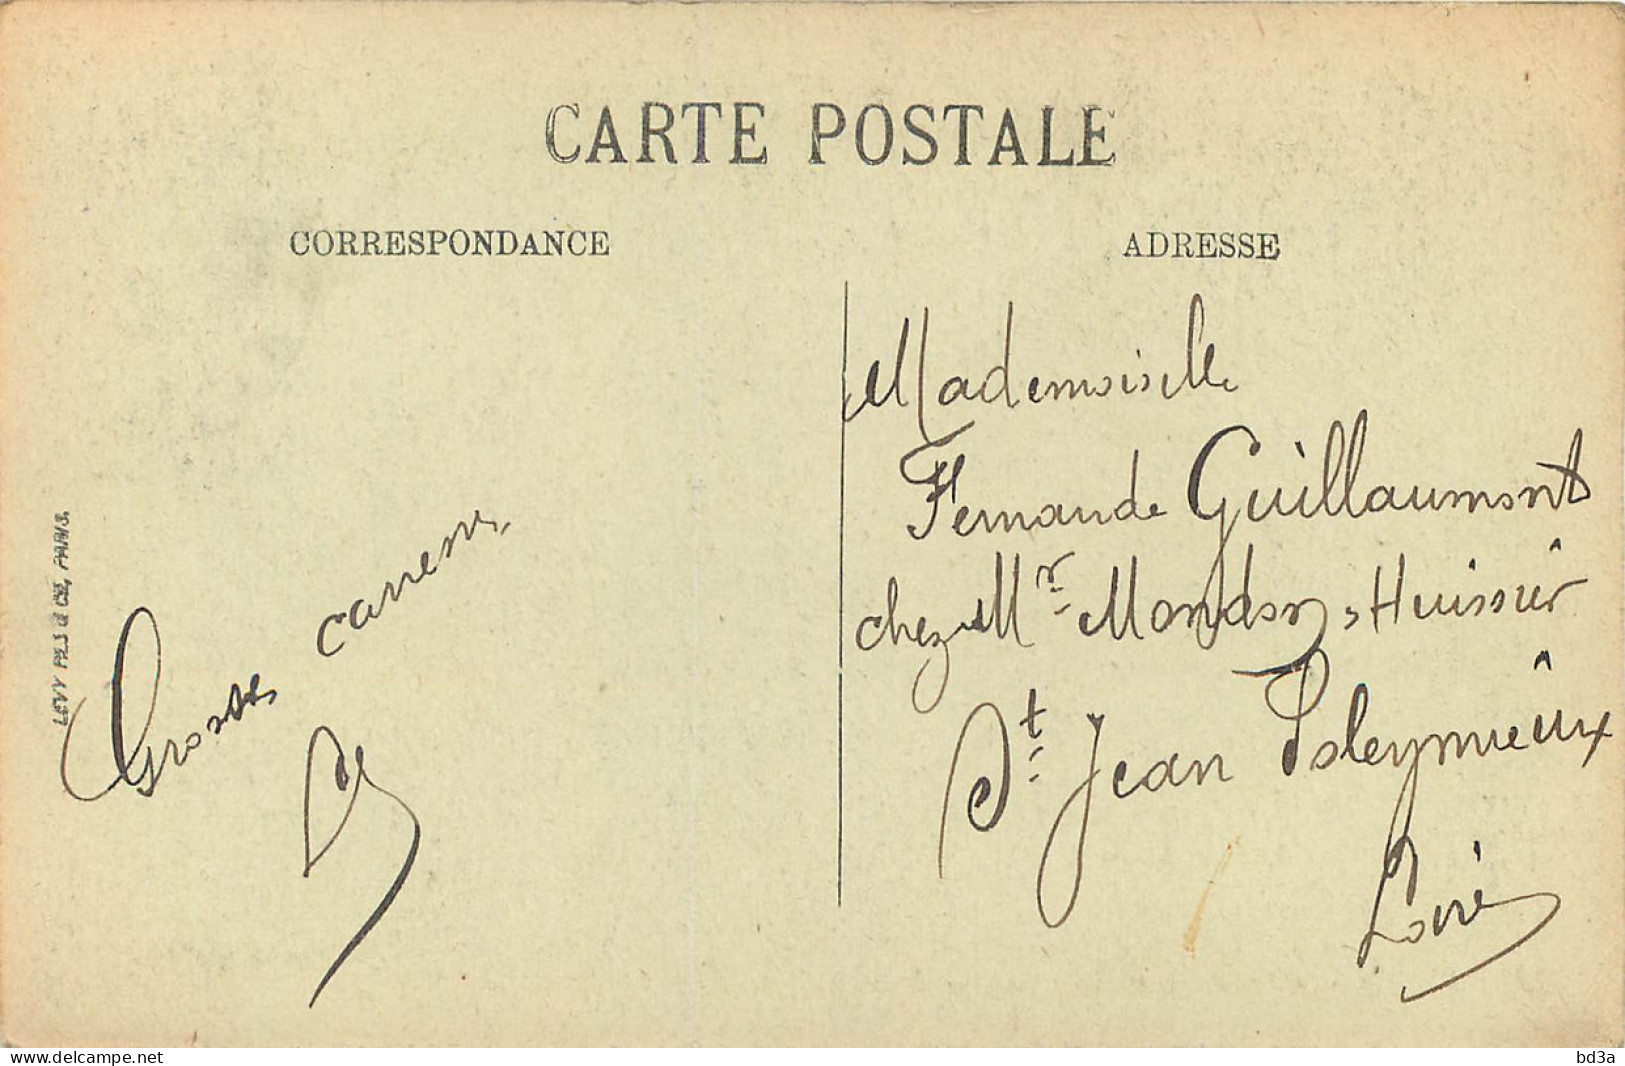 CARTE POSTALE
CORRESPONDANCE
ADRESSE
Mademoiselle
Fernande Guillaumont
chez Mr Mondon, Huissier
St Jean Soleymieux
Loire
Grosses caresses
LEVY FILS & CIE, PARIS.
www.delcampe.net
bd3a